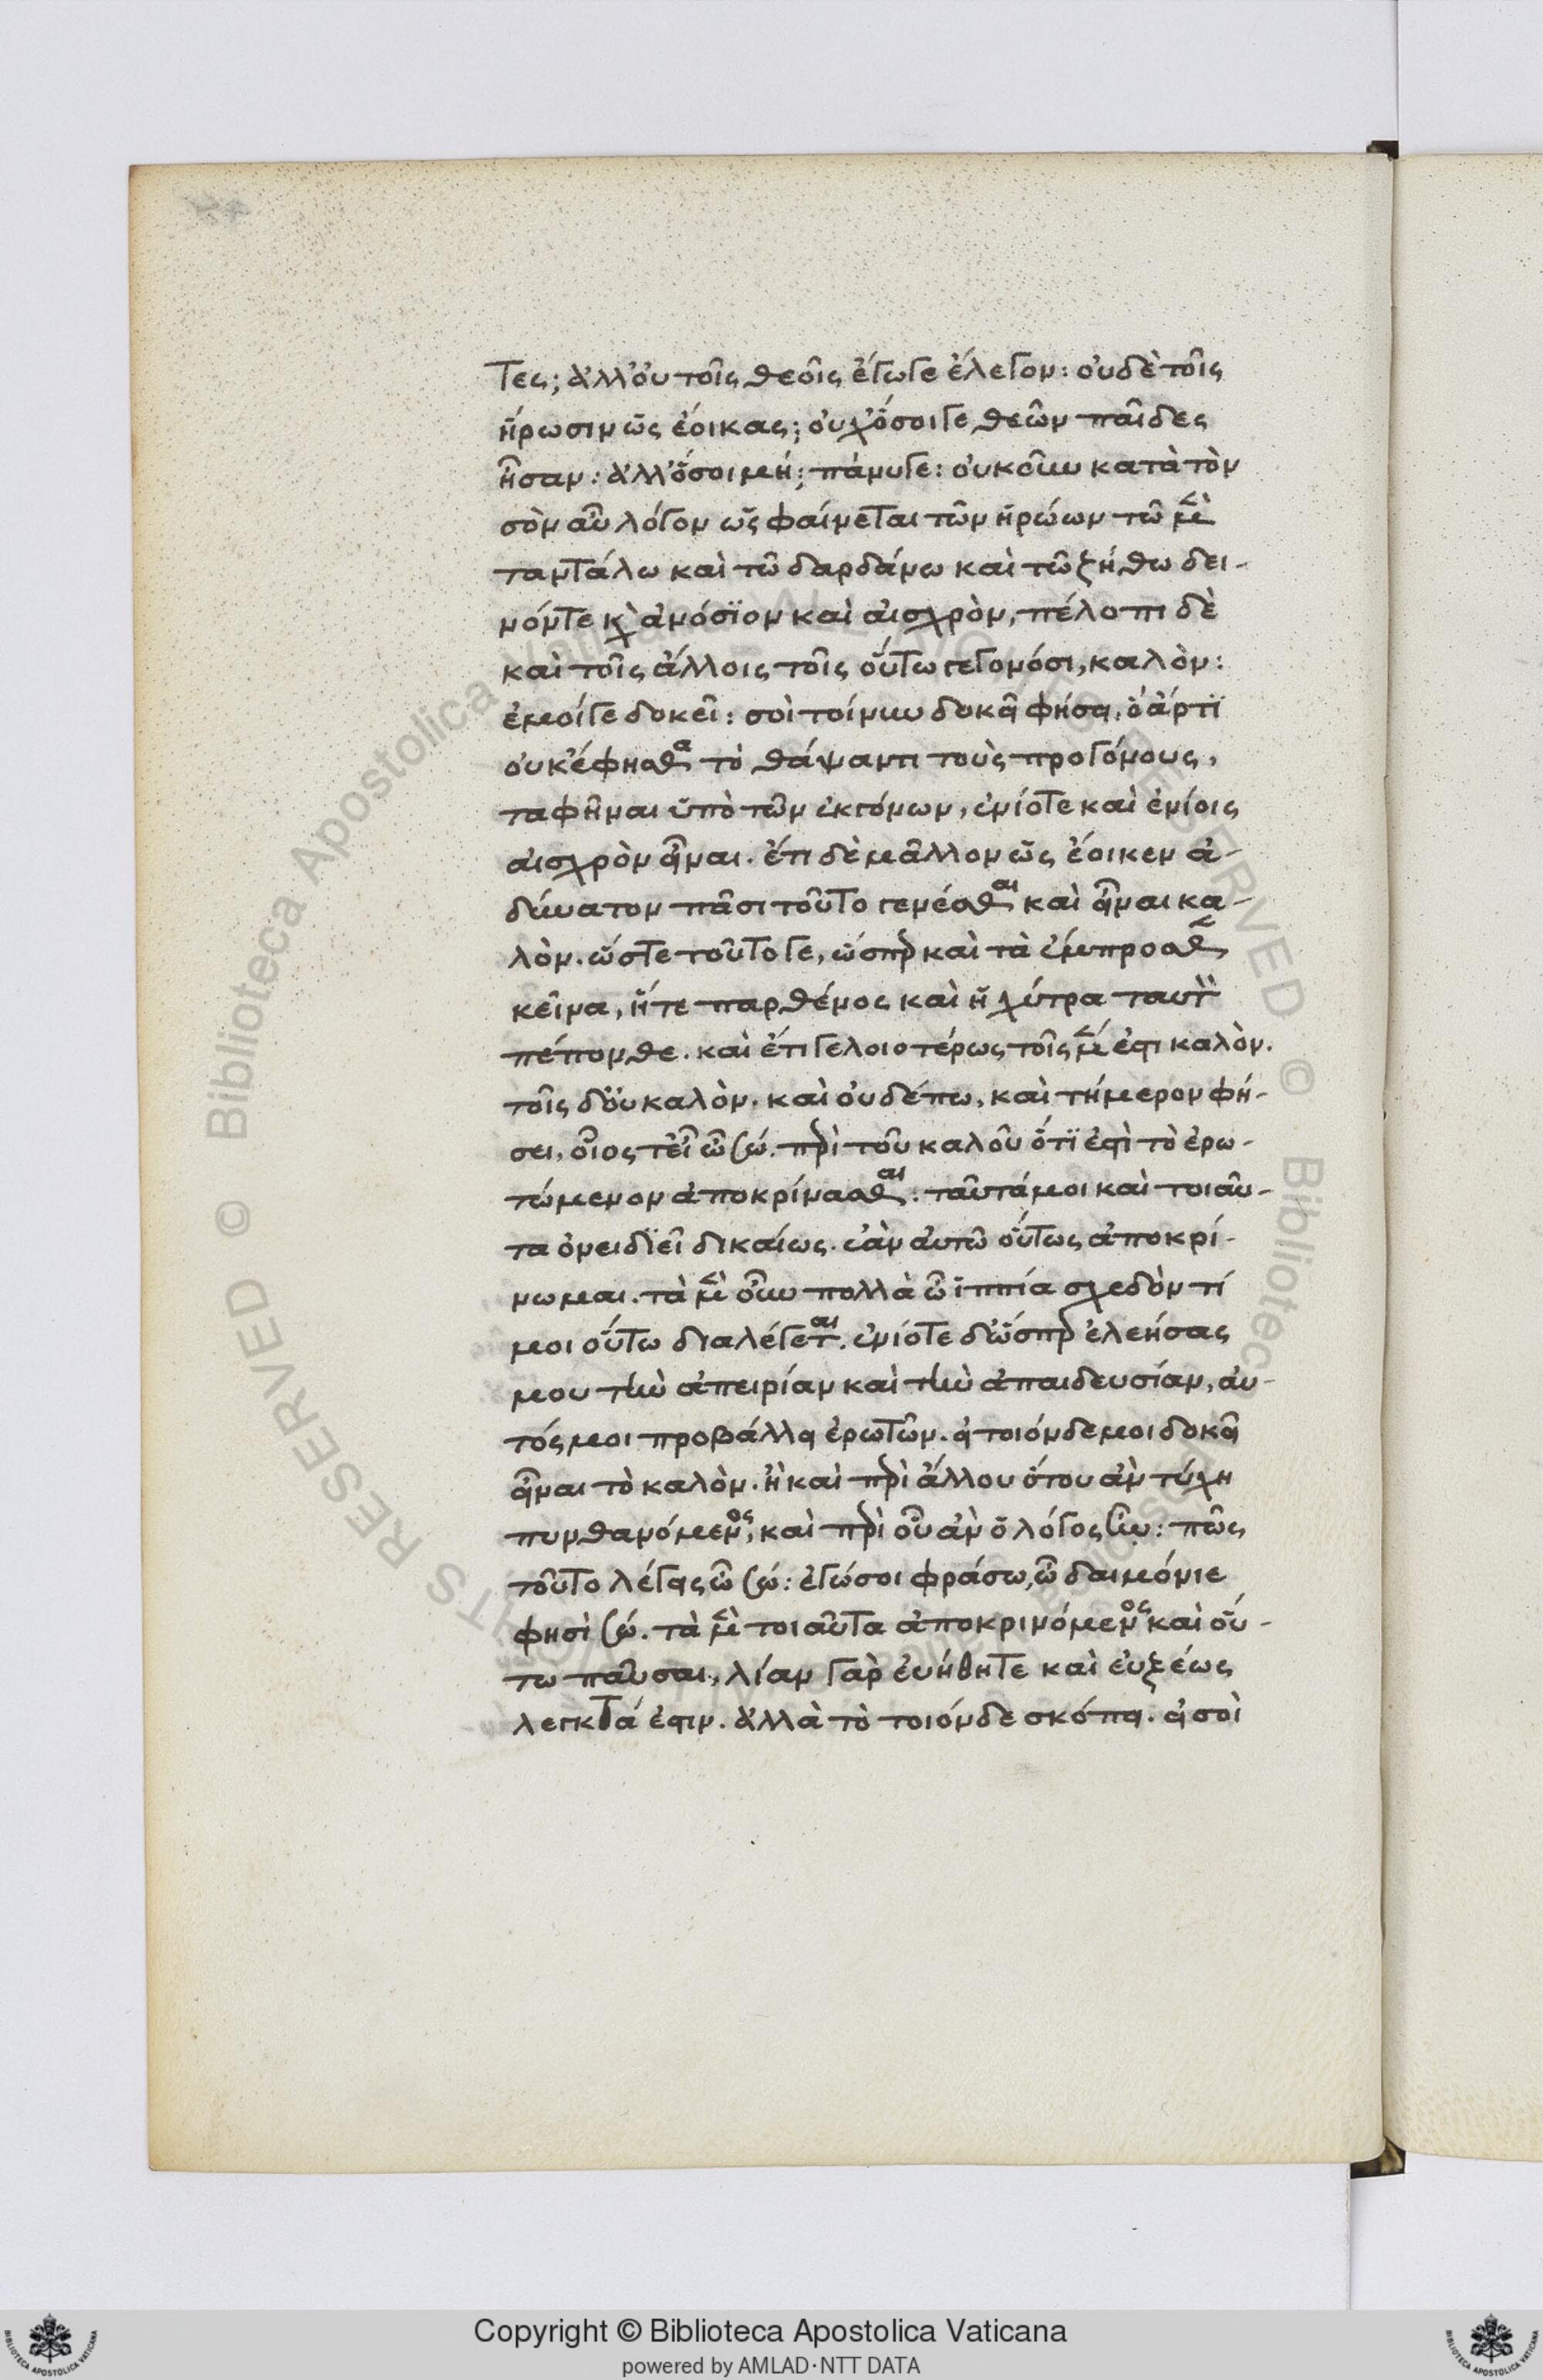 τες; ἀλλ' οὐ τοῖς θεοῖς ἔγωγε ἔλεγον: οὐδὲ τοῖς
ἥρωσιν ὡς ἔοικας; οὐχ' ὅσοι γε θεῶν παῖδες
ἦσαν: ἀλλ' ὅσοι μή; πάνυ γε: οὐκοῦν κατὰ τὸν
σὸν αὖ λόγον ὡς φαίνεται τῶν ἡρώων τῶ μὲν
ταντάλω καὶ τῶ δαρδάνω καὶ τῶ ζήθω δει-
νόν τε κ̀ ἀνόσϊον καὶ αἰσχρὸν, πέλοπι δὲ
καὶ τοῖς ἄλλοις τοῖς οὕτω γεγονόσι, καλὸν:
ἔμοιγε δοκεῖ: σοὶ τοίνυν δοκεῖ φήσει, ὃ ἄρτϊ
οὐκ ἔφησθα τὸ θάψαντι τοὺς προγόνους,
ταφῆναι ὑπὸ τῶν ἐκγόνων, ἐνίοτε καὶ ἐνίοις
αἰσχρὸν εἶναι. ἔτι δὲ μᾶλλον ὡς ἔοικεν ἀ-
δύνατον πᾶσι τοῦτο γενέσθαι καὶ εἶναι κα-
λὸν. ὥστε τοῦτο γε, ὥσπερ καὶ τὰ ἔμπροσθεν
κεῖνα, ἥτε παρθένος καὶ ἡ χύτρα ταυτὸν
πέπονθε. καὶ ἔτι γελοιοτέρως τοῖς μέν ἐστι καλὸν.
τοῖς δ' οὐ καλὸν. καὶ οὐδέπω, καὶ τήμερον φή-
σει, οἷος τ' εἶ ὦ σώ. περὶ τοῦ καλοῦ ὅτϊ ἐστὶ τὸ ἐρω-
τώμενον ἀποκρίνασθαι. ταῦτά μοι καὶ τοιαῦ-
τα ὀνειδϊεῖ δικαίως. ἐὰν αὐτῶ οὕτως ἀποκρί-
νωμαι. τὰ μὲν οὖν πολλὰ ὦ ἱππία σχεδὸν τί
μοι οὕτω διαλέγεται. ἐνίοτε δ' ὥσπερ ἐλεήσας
μου τὴν ἀπειρίαν καὶ τὴν ἀπαιδευσίαν, αὐ-
τός μοι προβάλλει ἐρωτῶν. εἰ τοιόνδε μοι δοκεῖ
εἶναι τὸ καλὸν. ἢ καὶ περὶ ἄλλου ὅτου ἂν τύχη
πυνθανόμενος, καὶ περὶ οὗ ἂν ὁ λόγος ἦν: πῶς
τοῦτο λέγεις ὦ σώ: ἐγώ σοι φράσω, ὦ δαιμόνιε
φησὶ σώ. τὰ μὲν τοιαῦτα ἀποκρινόμενος καὶ οὕ-
τω παῦσαι, λίαν γὰρ εὐήθη τε καὶ εὐξέως
λεγκτά ἐστιν. ἀλλὰ τὸ τοιόνδε σκόπει. εἰ σοὶ
© Biblioteca Apostolica Vaticana
Copyright © Biblioteca Apostolica Vaticana
powered by AMLAD·NTT DATA